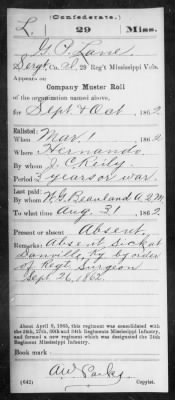 (Confederate.)
L. 29 Miss.
G. P. Lane
Sergt, Co. I, 29 Reg't Mississippi Vols.
Appears on
Company Muster Roll
of the organization named above,
for Sept & Oct, 1862.
Enlisted:
When Mar. 1, 1862.
Where Hernando
By whom J. C. Reily
Period 3 years or war
Last paid:
By whom W. G. Beanland A.Q.M.
To what time Aug. 31, 1862.
Present or absent Absent
Remarks: Absent, Sick at
Danville, Ky by order
of Regt. Surgeon
Sept. 26, 1862.
About April 9, 1865, this regiment was consolidated with
the 24th, 27th, 30th and 34th Regiments Mississippi Infantry,
and formed a new regiment which was designated the 24th
Regiment Mississippi Infantry.
Book mark:
(642) Copyist.